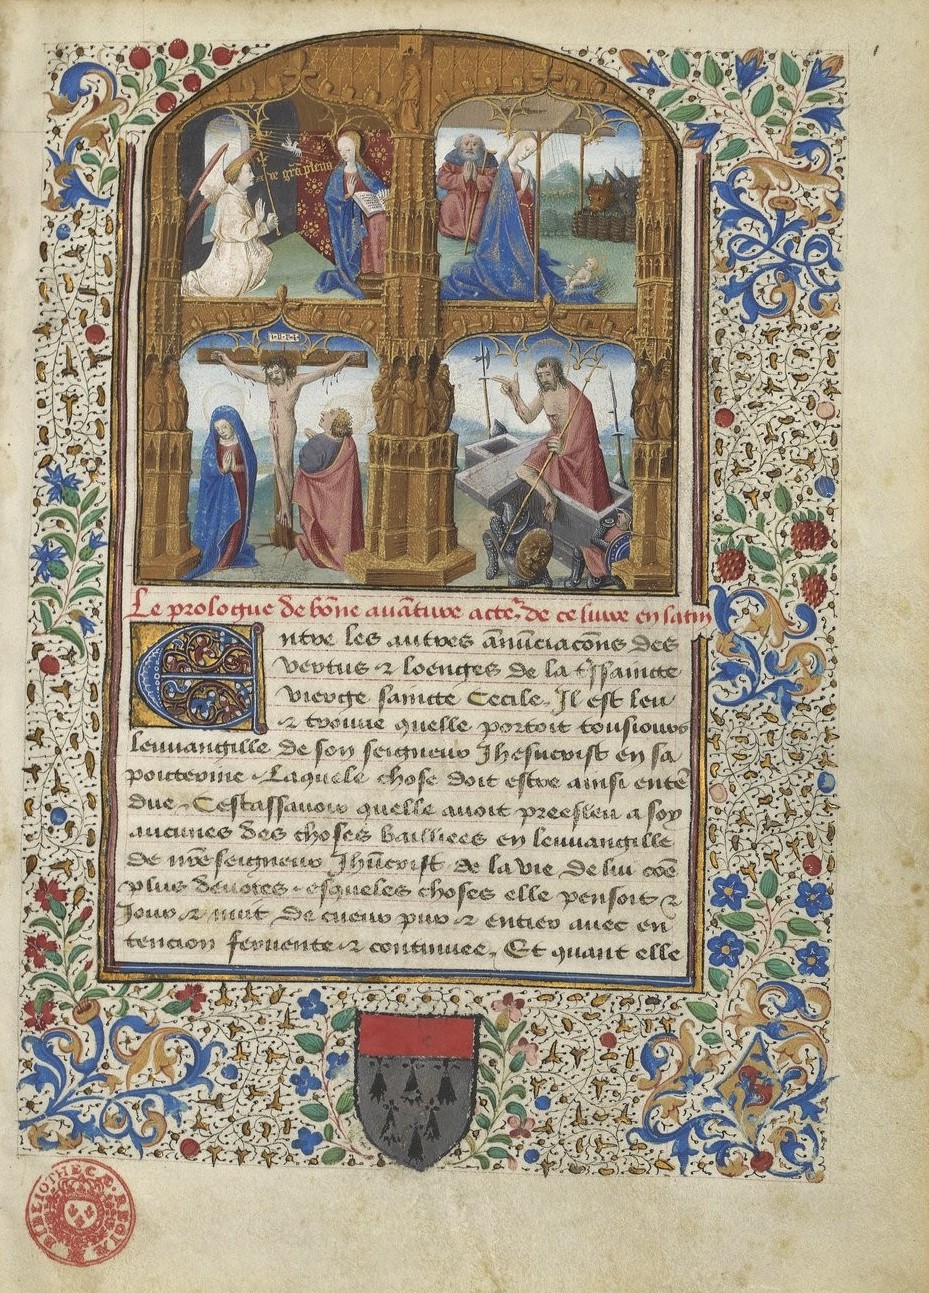 aue gra plena
I·N·R·I
Le prologue de bōne auāture acteˀ de ce liure en latin
Entre les autres ānūciacōns des
vertus ⁊ loenges de la tˢsaincte
vierge saincte Cecile. Il est leu
⁊ trouue quelle portoit tousiours
leuuangille de son seigneur Jhesucrist en sa
poicterine. Laquele chose doit estre ainsi entē
due. Cestassauoir quelle auoit preesleu a soy
aucunes des choses baillies en leuuangille
de nr̄e seigneur Jhūcrist. de la vie de lui cōe
plus deuotes. esqueles choses elle pensoit ⁊
Jour ⁊ nuit de cueur pur ⁊ entier auec en
tencion feruente ⁊ continuee. Et quant elle
BIBLIOTHECÆ REGIÆ